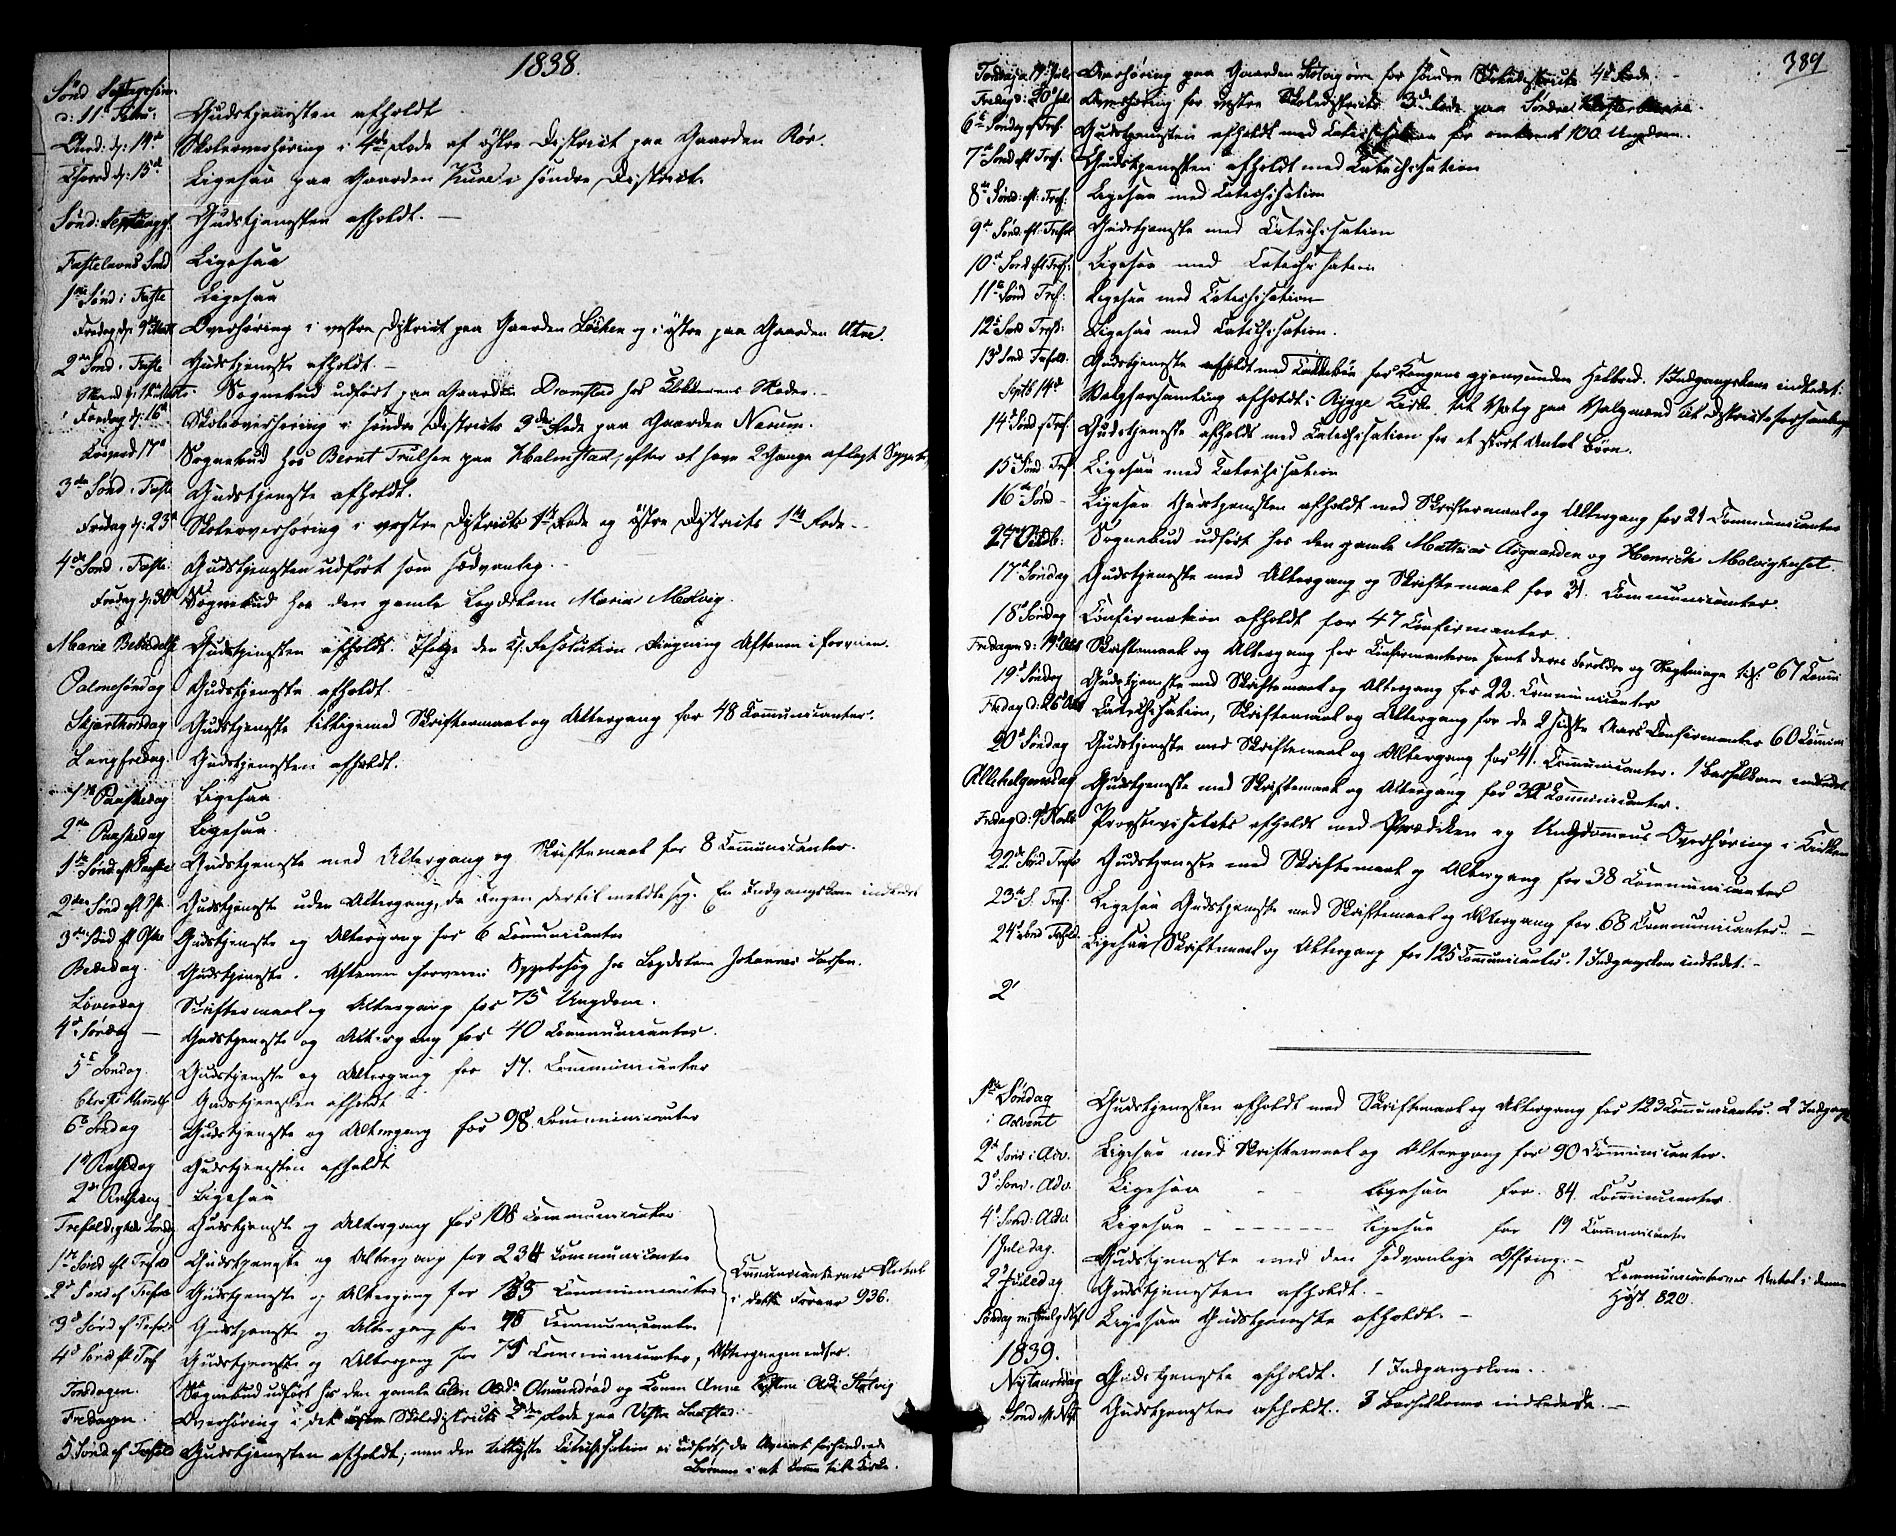 1838.
Sønd: Septuagesim:
d: 11te Febru: Gudstjenesten afholdt
Onsd: d: 14de Skoleoverhøring i 4de Rode af östre District paa Gaarden Rör.
Thorsd d: 15d Ligesaa paa Gaarden Kure i søndre District.
Sönd: Gudstjenesten afholdt. —
Fastelavns Sønd Ligesaa
1ste Sønd i Faste Ligesaa
Fredag d: 9de Marts Overhøring i vestre District paa Gaarden Löken og i östre paa Gaarden
2den Sønd i Faste Gudstjeneste afholdt. —
Sognebud udført paa Gaarden Dramstad hos Klokkerens Moder. —
Fredag d: 16d Skoleoverhøring i søndre Districts 3die Rode paa Gaarden
17d Sognebud hos Bernt Trulsen paa Halmstad, efter at have 2 Gange aflagt
3die Sønd i Faste Gudstjeneste afholdt.
Fredag d: 23d Skoleoverhøring i vestre Districts 1ste Rode og östre Districts 1ste Rode —
4de Sønd i Faste Gudstjenesten udført som sædvanlig. —
Fredag d: 30d Sognebud hos den gamle Lægdslem Maria Molvig.
Mariæ Bebudelse Gudstjenesten afholdt. Ifølge den Resolution Ringning Aftenen iforveien.
Palmesöndag Gudstjeneste afholdt. —
Skjærthorsdag Gudstjeneste tilligemed Skriftemaal og Altergang for 48 Communicanter.
Langfredag Gudstjenesten afholdt.
1ste Paaskedag Ligesaa
2den Paaskedag Ligesaa.
1ste Sønd eft Paaske Gudstjeneste med Altergang og Skriftemaal for 8 Communicanter.
2den Sønd eft P. Gudstjeneste uden Altergang, da ingen dertil meldte sig. En Indgangskone indledet
3die Sönd eft Paa Gudstjeneste og Altergang for 6 Communicanter
Bededag. Gudstjeneste. Aftenen forveien Sygebesøg hos Lægdslem Johannes
Løverdag Skriftemaal og Altergang for 75 Ungdom.
4d Søndag — Gudstjeneste og Altergang for 40 Communicanter.
5te Søndag. Gudstjeneste og Altergang for 57. Communicanter
Christi Himmelf. Gudstjenesten afholdt
6te Søndag Gudstjeneste og Altergang for 98 Communicanter
1ste Pintsedag Gudstjenesten afholdt
2den Pintsedag Ligesaa
Trefoldigheds Søndag Gudstjeneste og Altergang for 108 Communicanter
1ste Sönd eft Trefold Gudstjeneste og Altergang for 234 Communicanter
2d Sønd ef Trefold Gudstjeneste og Altergang for 185 Communicanter
Communicanternes Antal
i dette Foraar 936.
3d Sønd ef Trefold Gudstjeneste og Altergang for 78 Communicanter
4d Sönd eft Tref Gudstjeneste og Altergang for 75 Communicanter,
Torsdagen. Sognebud udført hos den gamle Elen Amundröd og Konen Anne
Fredagen. Overhøring i det östre Skoledistricts 2den Rode paa Vestre
5 Sønd ef Trefold Gudstjenesten afholdt; men den tillyste Catechisation ei udført, da Uveiret forhindrede
Börnene i at komme til Kirke.
389
Torsdag d 19 Juli Overhøring paa Gaarden for söndre Skoledistricts 4de Rode. —
Fredag d: 20 Juli Overhøring for vestre Skoledistricts 3die Rode paa Søndre
6te Søndag ef Tref. Gudstjenesten afholdt med Catechisation for omtrent 100 Ungdom.
7de Sønd eft Tref. Gudstjenesten afholdt med Catechisation
8de Sønd: eft: Tref: Ligesaa med Catechisation
9de Sönd: eft: Trefol Gudstjeneste med Catechisation
10de Sönd eft Tref: Ligesaa med Catechisation
11te Sønd Tref: Ligesaa med Catechisation
12te Sønd Tref: Ligesaa med Catechisation.
13d Sønd Trefold. Gudstjeneste afholdt med Takkebön for Kongens gjenvundne Helbred. 1 Indgangskone indledet.
Septb 14d Valgforsamling afholdt i Rygge Kirke til Valg paa Valgmænd til Districtsforsamlingen
14d Sönd ef Tref: Gudstjeneste afholdt med Catechisation for et stort Antal Börn.
15 Sønd. Tref Ligesaa med Catechisation
16de Sønd — Ligesaa Gudstjenesten afholdt med Skriftemaal og Altergang for 21 Communicanter
Octob: Sognebud udført hos den gamle Mathias Aasgaarden og Henrich Molvighuset.
17de Söndag Gudstjeneste med Altergang og Skriftemaal for 31. Communicanter.
18d Söndag Confirmation afholdt for 47 Confirmanter.
Fredagen d: 19de Oct Skriftemaal og Altergang for Confirmanterne samt deres Forældre og Slægtninge 67 Commu
19d Söndag Gudstjeneste med Skriftemaal og Altergang for 22. Communicanter
Fredag d: 26d Oct Catechisation, Skriftemaal og Altergang for de 2 sidste Aars Confirmanter 60 Commun
20d Søndag Gudstjeneste med Skriftemaal og Altergang for 41. Communicanter. 1 Barselkone indledet.
Allehelgensdag Gudstjeneste med Skriftemaal og Altergang for Communicanter.
Fredag d: 9d Novb Provstevisitats afholdt med Prædiken og Ungdommens Overhøring i Kirken
22de Sönd Tref Gudstjeneste med Skriftemaal og Altergang for 38 Communicanter
23de S. Tref. Ligesaa Gudstjeneste med Skriftemaal og Altergang for 68 Communicanter. —
24d Trefold. Ligesaa Skriftemaal og Altergang for 125 Communicanter. 1 Indgangskone indledet. —
2
1ste Søndag
i Advent Gudstjenesten afholdt med Skriftemaal og Altergang for 123 Communicanter. 2 Indgangs
2d Sönd i Adv. Ligesaa med Skriftemaal og Altergang for 90 Communicanter.
3d Sönd. Adv. Ligesaa - - Ligesaa for. 84. Communicanter.
4d Sønd: Adv Ligesaa - - - - Ligesaa for 19 Communicanter
1 Juledag. Gudstjeneste med den sædvanlige Offring. —
2d Juledag Gudstjenesten afholdt. —
Communicanternes Antal i denne
Høst 820.
Søndag Ligesaa Gudstjeneste afholdt. —
1839.
Nytaarsdag Gudstjeneste afholdt. 1 Indgangskone.
Gudstjeneste afholdt. 3 Barselkoner indledede. —